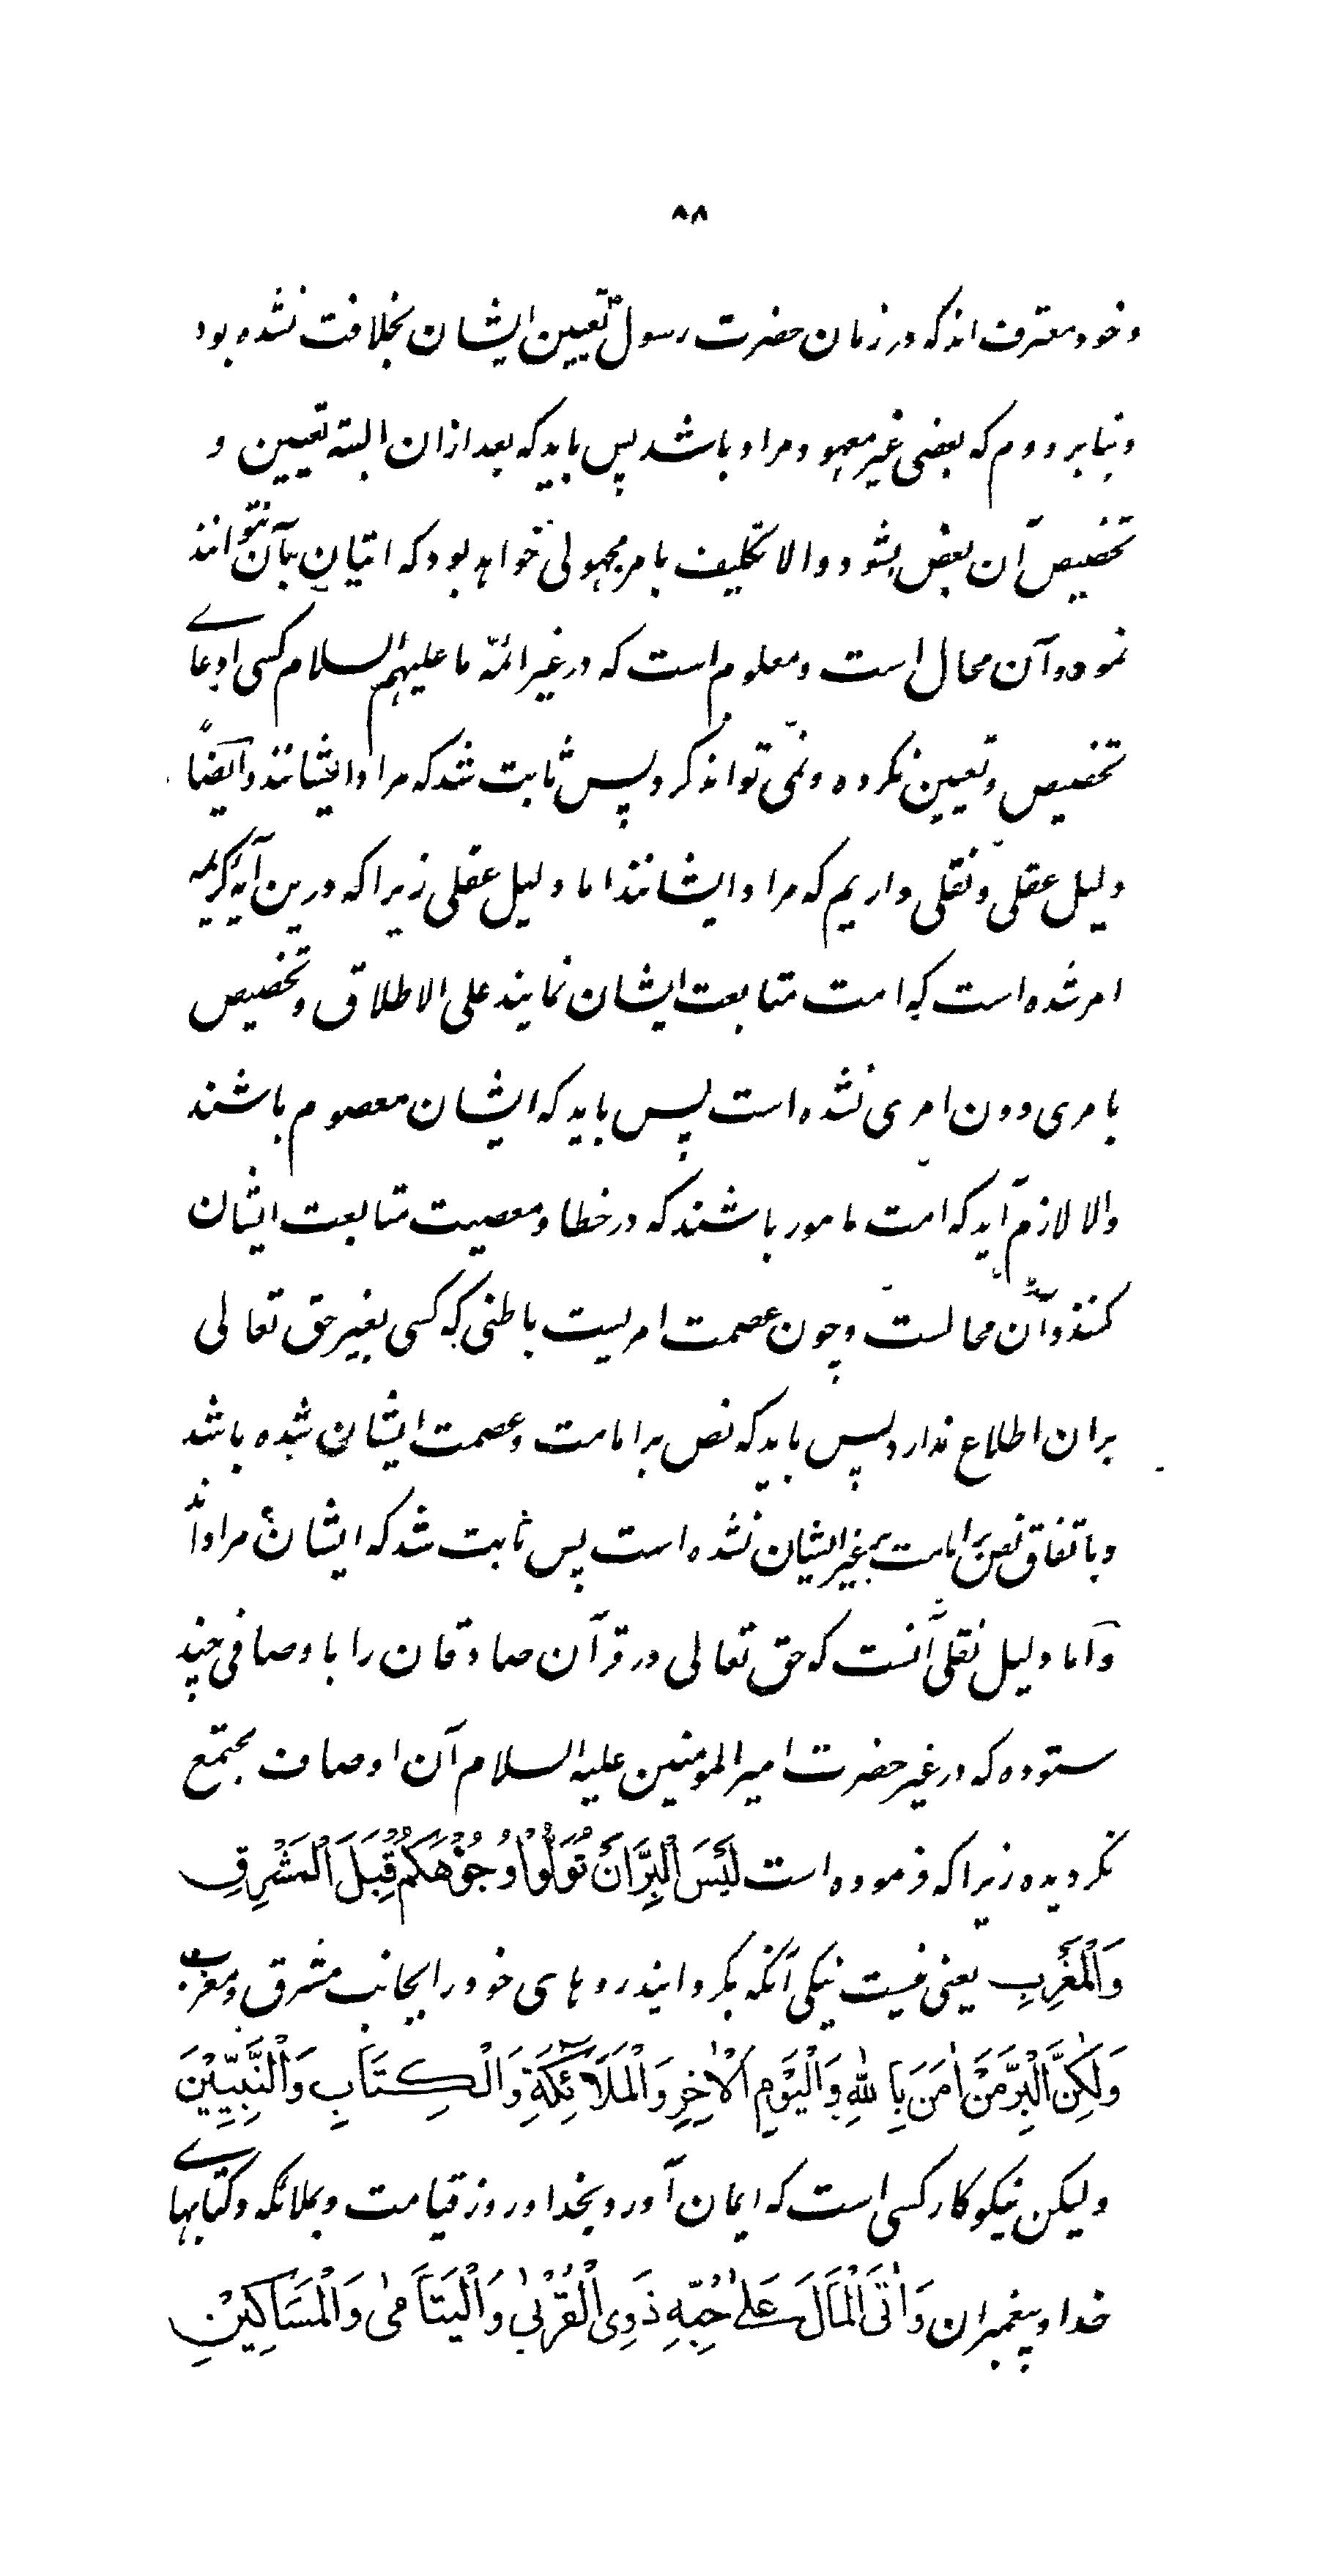 ۸۸
و خود معترف اند که در زمان حضرت رسول تعیین ایشان بخلافت نشده بود
و بنابر دوم که بعضی غیر معهود مراد باشد پس باید که بعد ازان البته تعیین و
تخصیص آن بعض بشود و الا تکلیف بامر مجهولی خواهد بود که اتیان بآن نتوانند
نمود و آن محال است و معلوم است که در غیر ائمّه ما علیهم السلام کسی ادعاے
تخصیص و تعیین نکرده و نمی تواند کرد پس ثابت شد که مراد ایشانند و ایضاً
دلیل عقلی و نقلی داریم که مراد ایشانند اما دلیل عقلی زیرا که درین آیهٔ کریمه
امر شده است که امت متابعت ایشان نمایند علی الاطلاق و تخصیص
بامری دون امری نشده است پس باید که ایشان معصوم باشند
والا لازم آید که امت مامور باشند که در خطا و معصیت متابعت ایشان
کنند و آن محالست و چون عصمت امریست باطنی که کسی بغیر حق تعالی
بران اطلاع ندارد پس باید که نص بر امامت و عصمت ایشان شده باشد
و باتفاق نص بر امامت بغیر ایشان نشده است پس ثابت شد که ایشان مراداند
و اما دلیل نقلی آنست که حق تعالی در قرآن صادقان را باوصافی چند
ستوده که در غیر حضرت امیر المومنین علیه السلام آن اوصاف مجتمع
نگردیده زیرا که فرموده است لَیْسَ الْبِرَّ اَنْ تُوَلُّوْا وُجُوْهَکُمْ قِبَلَ الْمَشْرِقِ
وَالْمَغْرِبِ یعنی نیست نیکی آنکه بگردانید روهای خود را بجانب مشرق و مغرب
وَلٰکِنَّ الْبِرَّ مَنْ اٰمَنَ بِاللهِ وَالْیَوْمِ الْاٰخِرِ وَالْمَلَآئِکَةِ وَالْکِتَابِ وَالنَّبِیِّیْنَ
ولیکن نیکوکار کسی است که ایمان آورد بخدا و روز قیامت و بملائکه و کتابهاے
خدا و پیغمبران وَاٰتَی الْمَالَ عَلٰی حُبِّهٖ ذَوِی الْقُرْبٰی وَالْیَتَامٰی وَالْمَسَاکِیْنَ